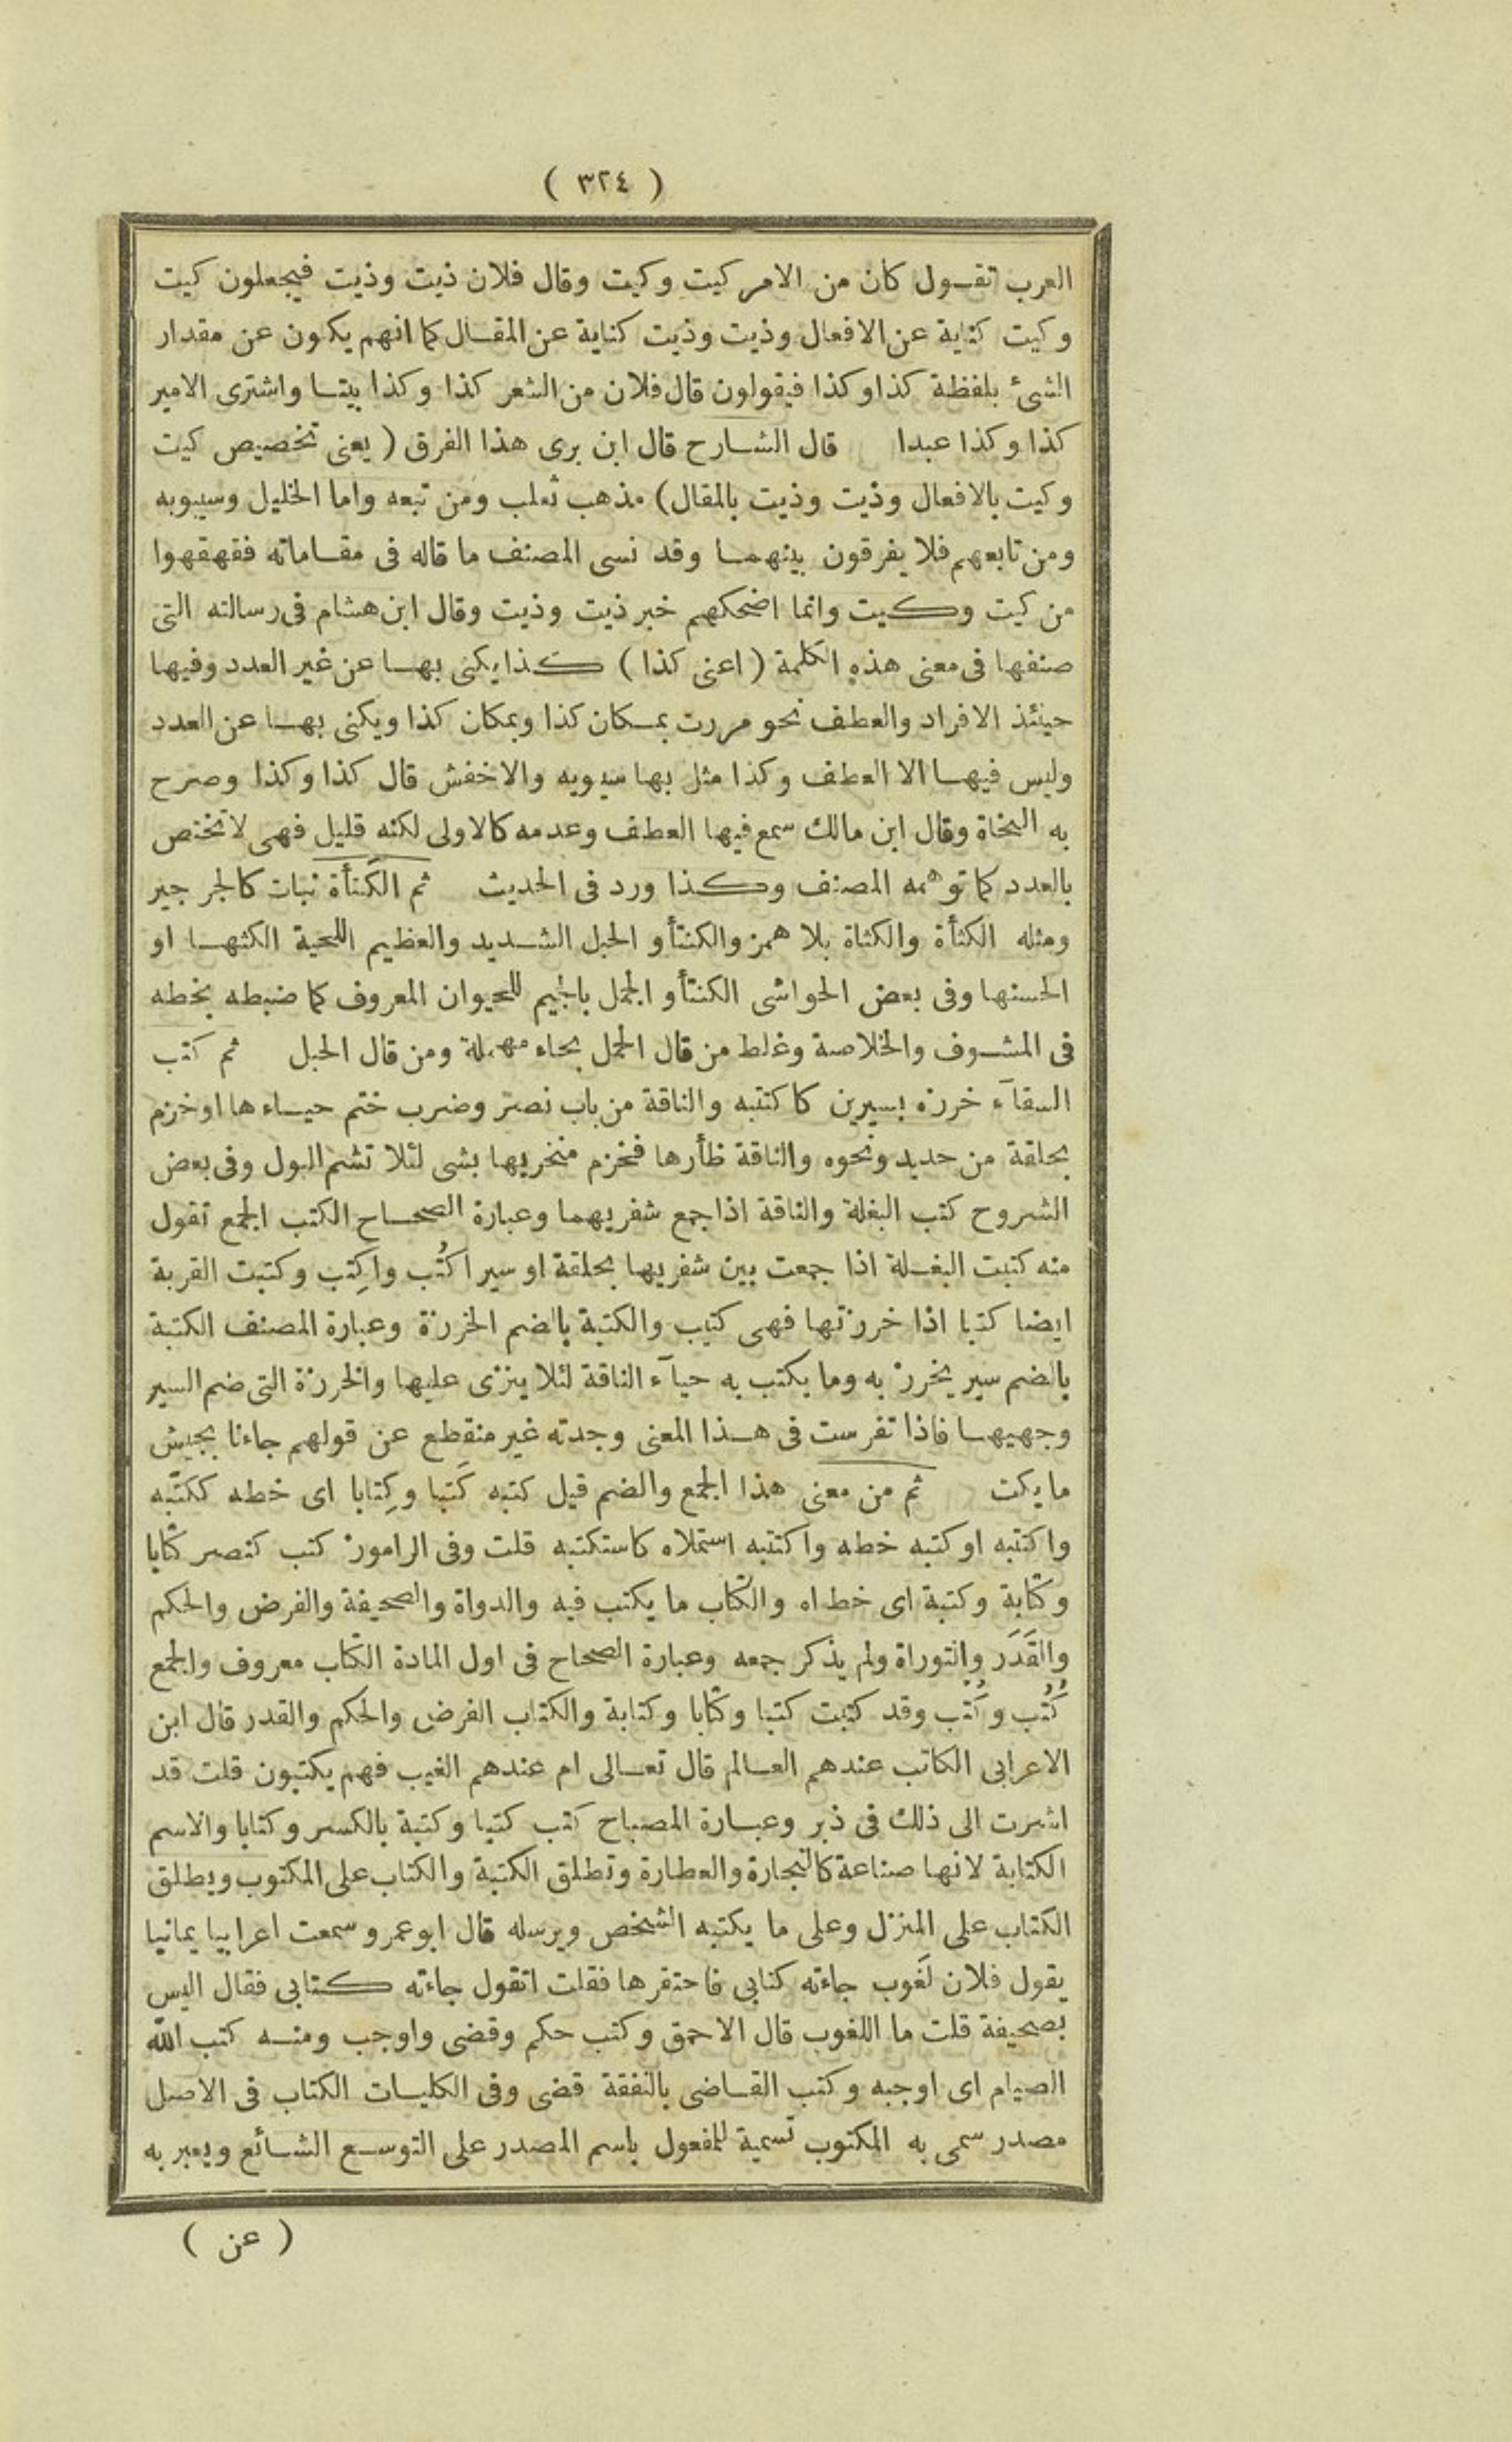 ( ٣٢٤ )
العرب تقول كان من الامر كيت وكيت وقال فلان ذيت وذيت فيجعلون كيت
وكيت كناية عن الافعال وذيت وذيت كناية عن المقال كما انهم يكنون عن مقدار
الشئ بلفظة كذا وكذا فيقولون قال فلان من الشعر كذا وكذا بيتا واشترى الامير
كذا وكذا عبدا قال الشارح قال ابن برى هذا الفرق ( يعنى تخصيص كيت
وكيت بالافعال وذيت وذيت بالمقال) مذهب ثعلب ومن تبعه واما الخليل وسيبويه
ومن تابعهم فلا يفرقون بينهما وقد نسى المصنف ما قاله فى مقاماته فقهقهوا
من كيت وكيت وانما اضحكهم خبر ذيت وذيت وقال ابن هشام فى رسالته التى
صنفها فى معنى هذه الكلمة ( اعنى كذا ) كذا يكنى بها عن غير العدد وفيها
حينئذ الافراد والعطف نحو مررت بمكان كذا وبمكان كذا ويكنى بها عن العدد
وليس فيها الا العطف وكذا مثل بها سيبويه والاخفش قال كذا وكذا وصرح
به النحاة وقال ابن مالك سمع فيها العطف وعدمه كالاولى لكنه قليل فهى لا تختص
بالعدد كما توهمه المصنف وكذا ورد فى الحديث ثم الكَنأة نبات كالجرجير
ومثله الكثأة والكثاة بلا همز والكنتأو الحبل الشديد والعظيم اللحية الكثها او
الحسنها وفى بعض الحواشى الكنتأو الجمل بالجيم للحيوان المعروف كما ضبطه بخطه
فى المشوف والخلاصة وغلط من قال الحمل بحاء مهملة ومن قال الحبل ثم كتب
السقآء خرزه بسيرين كاكتتبه والناقة من باب نصر وضرب ختم حياءها او خزم
بحلقة من حديد ونحوه والناقة ظأرها فخزم منخريها بشى لئلا تشم البول وفى بعض
الشروح كتب البغلة والناقة اذا جمع شفريهما وعبارة الصحاح الكتب الجمع تقول
منه كتبت البغلة اذا جمعت بين شفريها بحلقة او سير اكتُب واكتِب وكتبت القربة
ايضا كتبا اذا خرزتها فهى كتيب والكتبة بالضم الخرزة وعبارة المصنف الكتبة
بالضم سير يخرز به وما يكتب به حيآء الناقة لئلا ينزى عليها والخرزة التى ضم السير
وجهيها فاذا تفرست فى هذا المعنى وجدته غير منقطع عن قولهم جاءنا بجيش
ما يكت ثم من معنى هذا الجمع والضم قيل كتبه كَتبا وكِتابا اى خطه ككتّبه
واكتتبه او كتبه خطه واكتتبه استملاه كاستكتبه قلت وفى الراموز كتب كنصر كتابا
وكتابة وكتبة اى خط اه والكتاب ما يكتب فيه والدواة والصحيفة والفرض والحكم
والقَدَر والتوراة ولم يذكر جمعه وعبارة الصحاح فى اول المادة الكتاب معروف والجمع
كُتُب وكُتْب وقد كتبت كتبا وكتابا وكتابة والكتاب الفرض والحكم والقدر قال ابن
الاعرابى الكاتب عندهم العالم قال تعالى ام عندهم الغيب فهم يكتبون قلت قد
اشرت الى ذلك فى ذبر وعبارة المصباح كتب كتبا وكتبة بالكسر وكتابا والاسم
الكتابة لانها صناعة كالنجارة والعطارة وتطلق الكتبة والكتاب على المكتوب ويطلق
الكتاب على المنزل وعلى ما يكتبه الشخص ويرسله قال ابو عمرو سمعت اعرابيا يمانيا
يقول فلان لَغوب جاءته كتابى فاحتقرها فقلت اتقول جاءته كتابى فقال اليس
بصحيفة قلت ما اللغوب قال الاحمق وكتب حكم وقضى واوجب ومنه كتب الله
الصيام اى اوجبه وكتب القاضى بالنفقة قضى وفى الكليات الكتاب فى الاصل
مصدر سمى به المكتوب تسمية للمفعول باسم المصدر على التوسع الشائع ويعبر به
( عن )